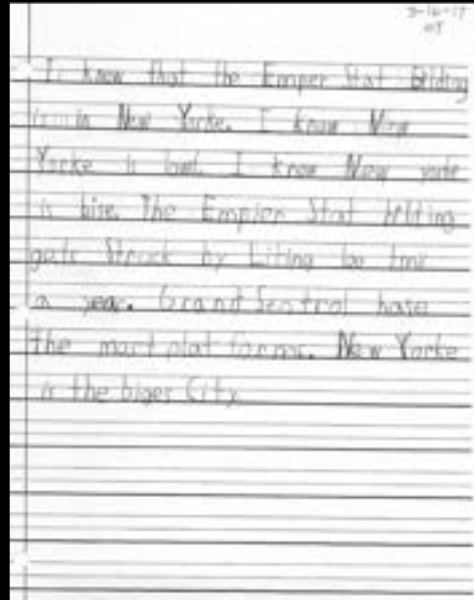 3-16-17
I know that the Emper Stat Bilding
is in New Yorke. I know New
Yorke is loud. I know New yorke
is bise. The Empier Stat bilding
gets Struck by Liting
a year. Grand Sentrol hase
the most plat forms. New Yorke
is the biges City.